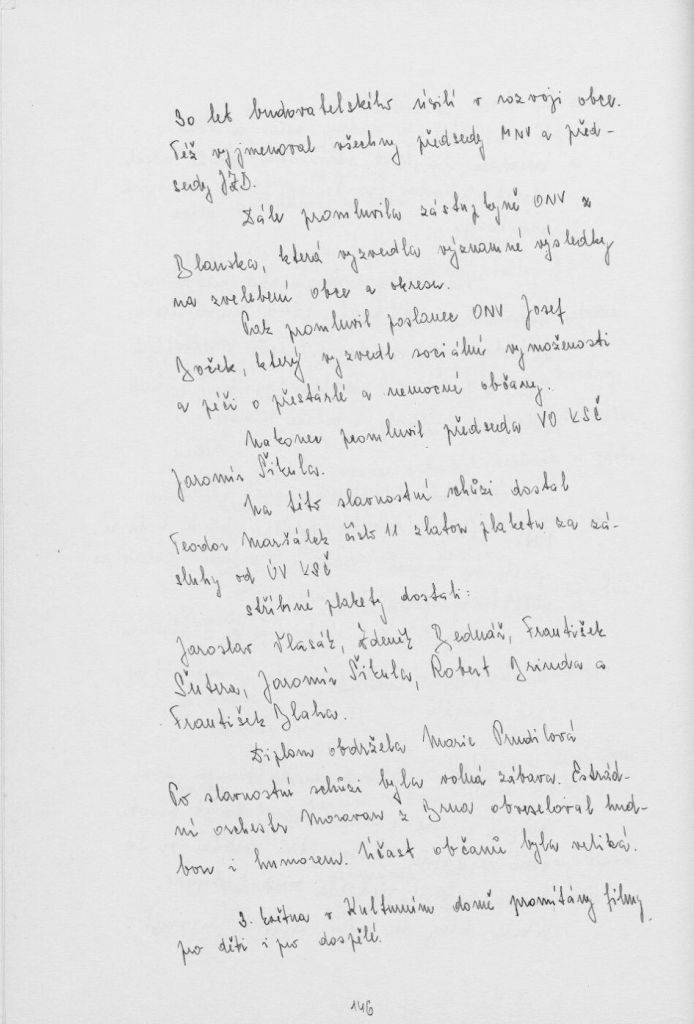 30 let budovatelského úsilí v rozvoji obce.
Též vyjmenoval všechny předsedy MNV a před-
sedy JZD.
Dále promluvila zástupkyně ONV z
Blanska, která vyzvedla významné výsledky
na zvelebení obce a okresu.
Pak promluvil poslanec ONV Josef
Boček, který vyzvedl sociální vymoženosti
a péči o přestárlé a nemocné občany.
Nakonec promluvil předseda VO KSČ
Jaromír Šikula.
Na této slavnostní schůzi dostal
Teodor Maršálek číslo 11 zlatou plaketu za zá-
sluhy od ÚV KSČ
stříbrné plakety dostali:
Jaroslav Vlasák, Zdeněk Bednář, František
Šutera, Jaromír Šikula, Robert Brinda a
František Blaha.
Diplom obdržela Marie Prudilová
Po slavnostní schůzi byla volná zábava. Estrád-
ní orchestr Moravan z Brna obveseloval hud-
bou i humorem. Účast občanů byla veliká.
3. května v Kulturním domě promítány filmy
pro děti i pro dospělé.
146